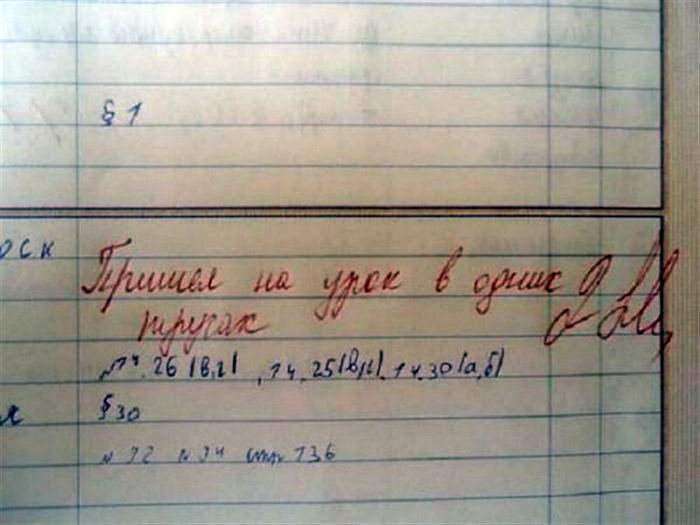 § 1
оск
Пришел на урок в одних
трусах
2
№14.26(в,г), 14.25(в,г), 14.30(а,б)
я
§30
№92 №94 стр 136